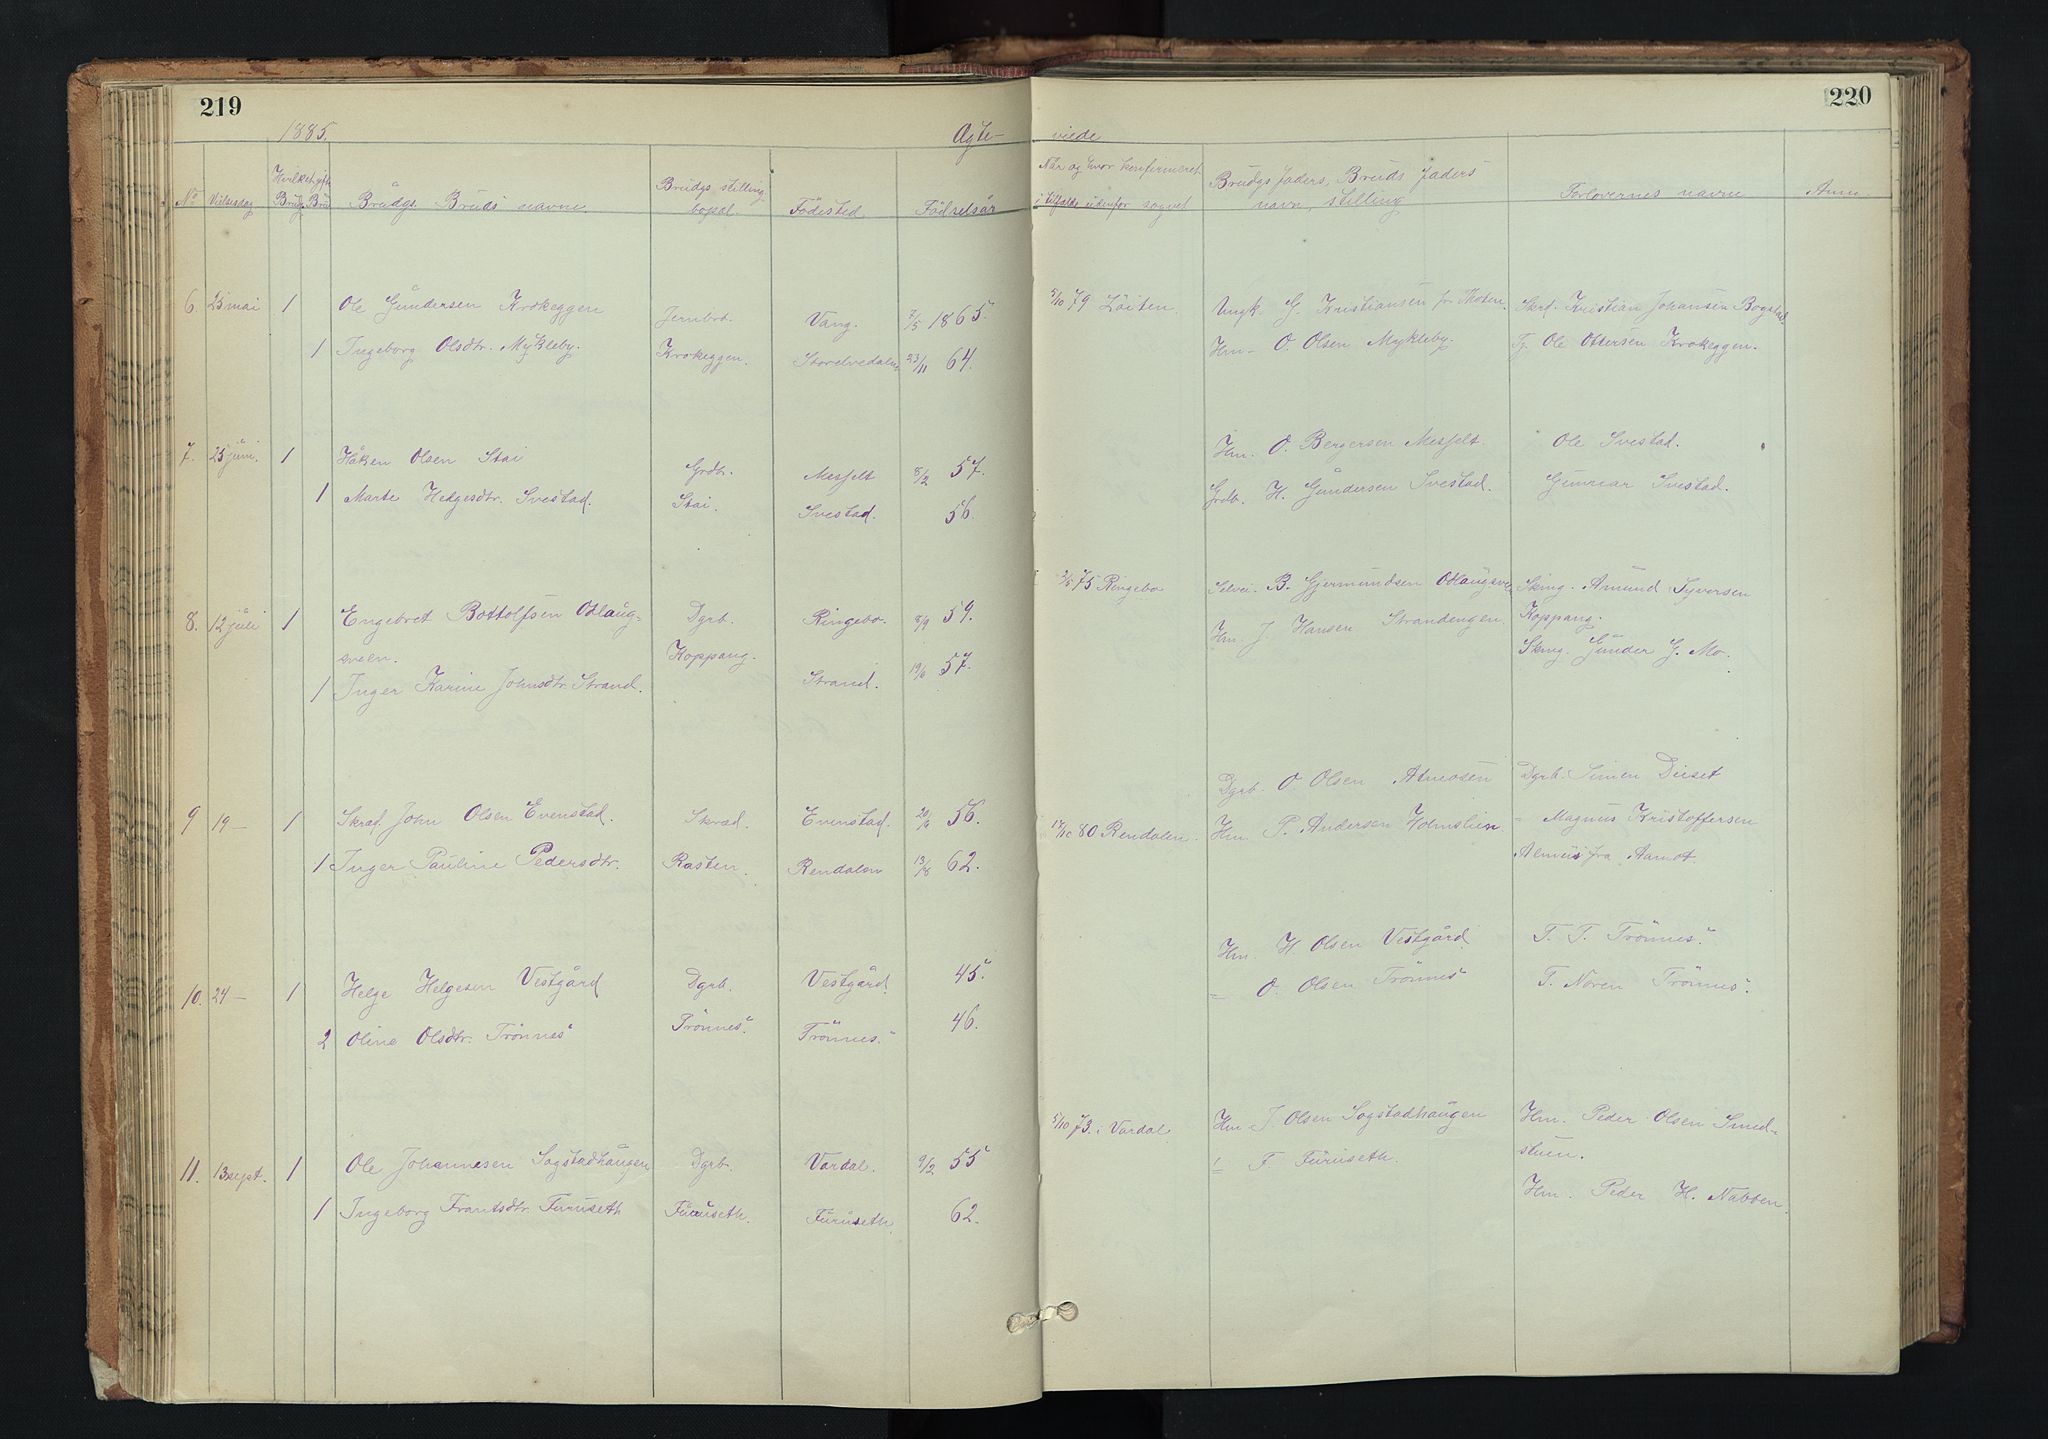 219
220
1885.
Ægte-
viede
No
Vielsesdag
Hvilket gift.
Brudg. Brud
Brudgs. Bruds navne.
Brudgs stilling. bopæl.
Födested.
Födselsår
Når og hvor konfirmeret
i tilfælde udenfor sognet
Brudgs faders, Bruds faders
navn, stilling
Forlovernes navne
Anm.
6 25 mai 1 Ole Gundersen Krokeggen Jernbrd. Vang. 7/5 1865. 5/10 79 Löiten Ungk. G. Kristiansen fr. Thoten. Skrd. Kristian Johansen Bogstad.
1 Ingeborg Olsdtr. Mykleby. Krokeggen. Storelvedalen 23/11 64. Hm- O. Olsen Mykleby. Tj. Ole Ottersen Krokeggen.
7. 25 juni. 1 Håken Olsen Stai Grdbr. Mesfelt 8/2 57. Hm. O. Bergersen Mesfelt. Ole Svestad.
1 Marte Helgesdtr. Svestad. Stai. Svestad. 56. Grdb. H. Gundersen Svestad. Gunnar Svestad.
8. 12 juli 1 Engebret Bottolfsen Odlaug-
sveen. Dgrb. Ringebo. 8/9 59. 2/5 75 Ringebo Selvei. B. Gjermundsen Odlaugsve Sking. Amund Syversen
Koppang.
1 Inger Karine Johnsdtr. Strand. Koppang. Strand. 19/6 57. Hm. J. Hansen Strandengen. Sking. Gunder G. Mo.
9 19- 1 Skræd. John Olsen Evenstad. Skræd. Evenstad. 20/9 56. Dgrb. O Olsen Atneosen Dgrb. Simen Dieset
1 Inger Pauline Pedersdtr. Rasten. Rendalen 13/8 62. 17/10 80 Rendalen. Hm P. Andersen Holmslien = Magnus Kristoffersen
fra Aamot.
10. 24- 1 Helge Helgesen Vestgård Dgrb. Vestgård. 45. Hm. H. Olsen Vestgård. T. T. Trönnes.
2 Oline Olsdtr. Trönnes Trönnes. Trönnes. 46. = O. Olsen Trönnes T. Noren Trönnes.
11. 13 sept. 1 Ole Johannesen Sogstadhaugen Dgrb. Vardal. 9/2 55 5/10 73. i Vardal Hm J. Olsen Sogstadhaugen Hm. Peder Olsen Smed-
stuen.
1 Ingeborg Frantsdtr. Furuseth Furuseth. Furuseth 62. = F Furuseth. Hm. Peder H. Nabben.